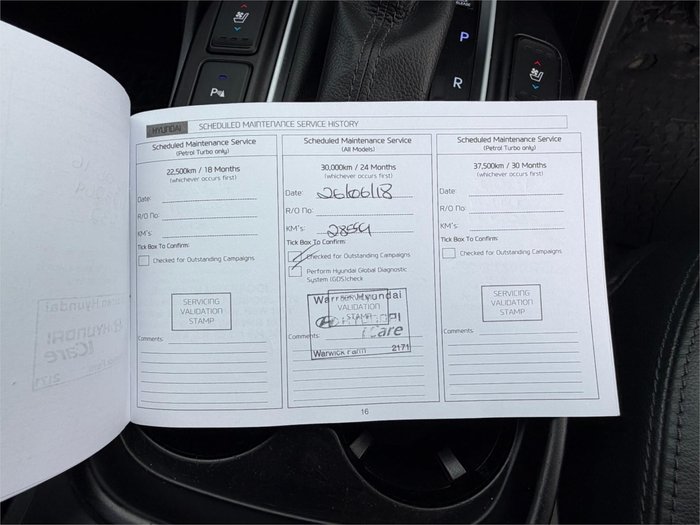 PLEASE
P
R
HYUNDAI SCHEDULED MAINTENANCE SERVICE HISTORY
Scheduled Maintenance Service
(Petrol Turbo only)
22,500km / 18 Months
(whichever occurs first)
Date:
R/O No:
KM's:
Tick Box To Confirm:
Checked for Outstanding Campaigns
SERVICING
VALIDATION
STAMP
Comments:
Scheduled Maintenance Service
(All Models)
30,000km / 24 Months
(whichever occurs first)
Date: 26/06/18
R/O No:
KM's: 28559
Tick Box To Confirm:
Checked for Outstanding Campaigns
Perform Hyundai Global Diagnostic
System (GDS)check
SERVICING
VALIDATION
STAMP
Warren Hyundai
HYUNDAI
iCare
Warwick Farm 2171
Comments:
Scheduled Maintenance Service
(Petrol Turbo only)
37,500km / 30 Months
(whichever occurs first)
Date:
R/O No:
KM's:
Tick Box To Confirm:
Checked for Outstanding Campaigns
SERVICING
VALIDATION
STAMP
Comments:
16